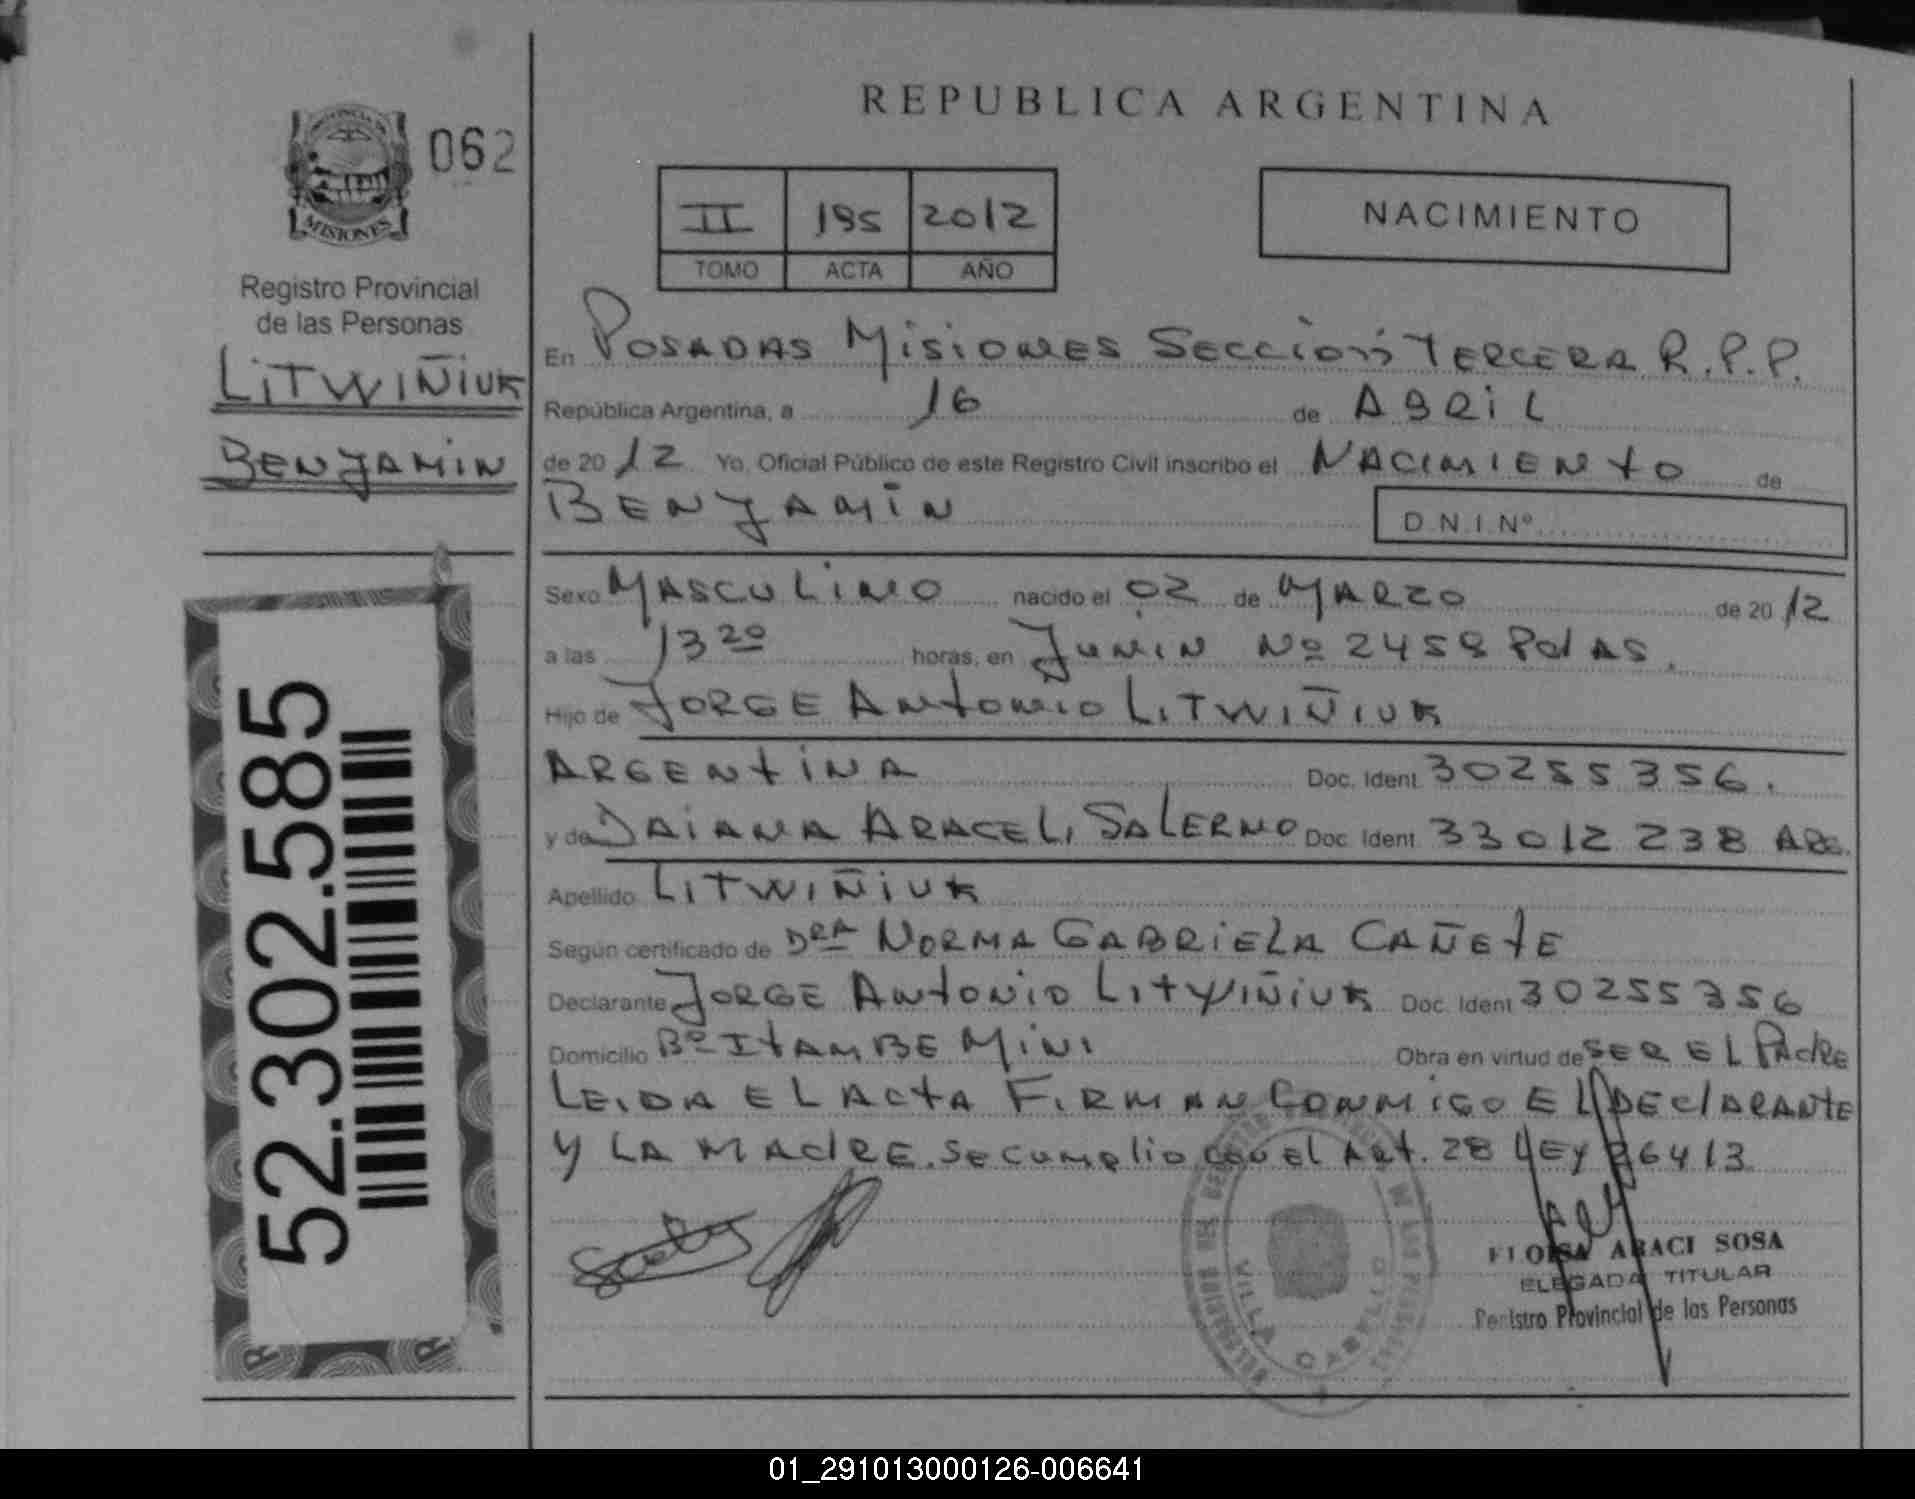 062
MISIONES
Registro Provincial
de las Personas
LITWIÑIUK
BENJAMIN
52.302.585
REPUBLICA ARGENTINA
II 195 2012
TOMO ACTA AÑO
NACIMIENTO
En POSADAS MISIONES SECCION TERCERA R.P.P.
República Argentina, a 16 de ABRIL
de 2012 Yo, Oficial Público de este Registro Civil inscribo el NACIMIENTO de
BENJAMIN
D.N.I.Nº
Sexo MASCULINO nacido el 02 de MARZO de 2012
a las 13 20 horas, en JUNIN Nº 2458 PdAS.
Hijo de JORGE ANTONIO LITWIÑIUK
ARGENTINA Doc. Ident. 30255356.
y de DAIANA ARACELI SALERNO Doc. Ident. 33012238 ARG.
Apellido LITWIÑIUK
Según certificado de DRA NORMA GABRIELA CAÑETE
Declarante JORGE ANTONIO LITWIÑIUK Doc. Ident 30255356
Domicilio Bº ITAMBE MINI Obra en virtud de SER EL PADRE
LEIDA EL ACTA FIRMAN CONMIGO EL DECLARANTE
Y LA MADRE. Se cumplio con el Art. 28 LEY 26413
VILLA CABELLO
ELOISA ARACI SOSA
DELEGADA TITULAR
Registro Provincial de las Personas
01_291013000126-006641